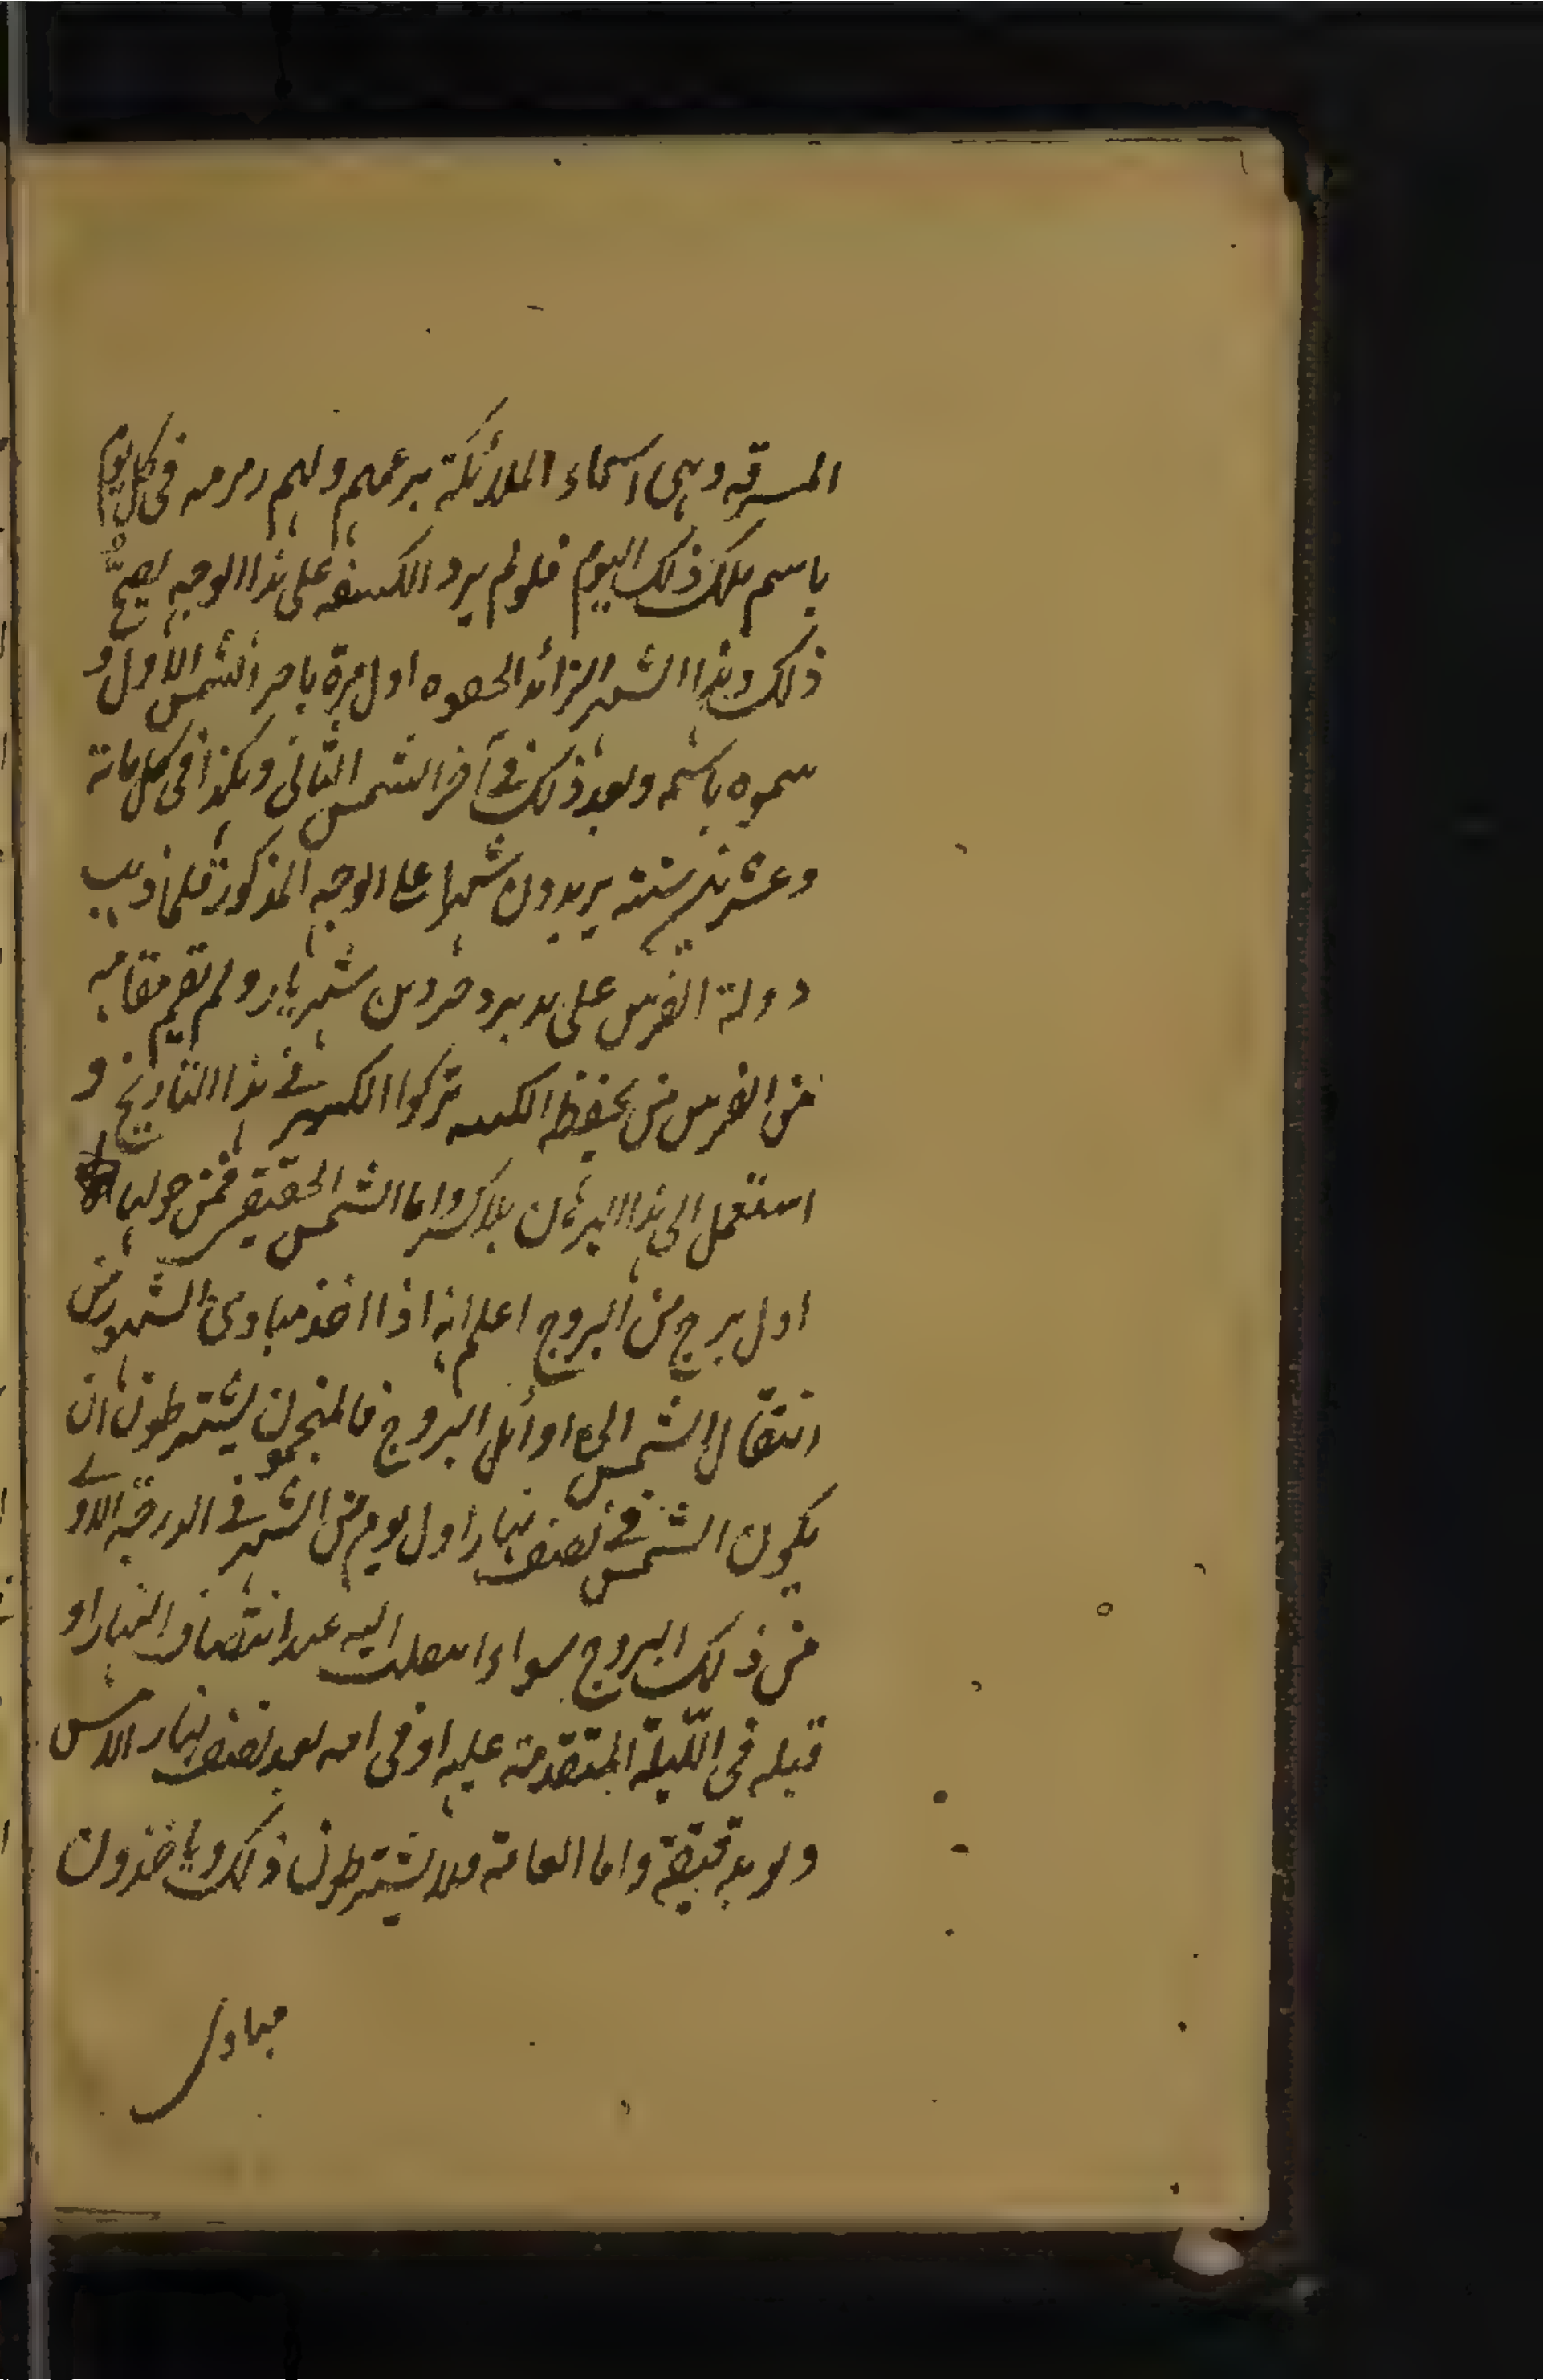 المسرقه وهى اسماء الملائكة بزعمهم ولهم زمزمه فى كل يوم
باسم ملك ذلك اليوم فلو لم يرد الكسفه على هذا الوجه لصح
ذلك وهذا الشهر الزائد اول مرة باخر الشمس الاول و
سموه باسمه وبعد ذلك فى آخر الشمس الثانى وهكذا فى كل مائة
وعشرين سنة يريدون شهرا على الوجه المذكور فلما ذهب
دولة الفرس على يد يزدجرد بن شهريار ولم يقم مقامه
من الفرس من يحفظ الكبسه تركوا الكبس فى هذا التاريخ و
استعمل الى هذا الزمان بلا كسر واما الشمس الحقيقى فمن حولها
اول برج من البروج اعلم انه اذا اخذ مبادى الشهور من
انتقال الشمس الى اوائل البروج فالمنجمون يشترطون ان
يكون الشمس فى نصف نهار اول يوم من الشهر فى الدرجه الاولى
من ذلك البروج سواء انتقلت اليه عند انتصاف النهار او
قبله فى الليلة المتقدمة عليه او فى امسه بعد نصف نهار الامس
ولو بدقيقة واما العامة فلا يشترطون ذلك وياخذون
مبادى